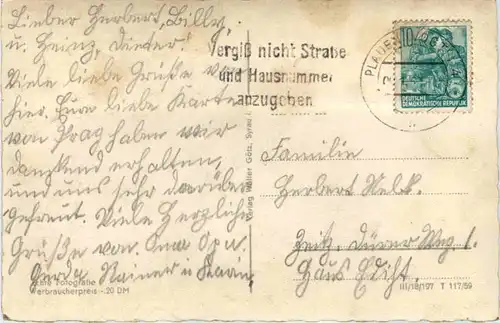 Lieber Herbert, Billy,
u. Heinz, Dieter!
Viele liebe Grüße von
hier. Eure liebe Karte
von Prag haben wir
dankend erhalten,
und uns sehr darüber
gefreut. Viele Herzliche
Grüße von. Oma Opa u.
Gerda, Rainer u.
Echte Fotografie
Verbraucherpreis -.20 DM
Verlag Walter Götz, Syrau i.
ergiß nicht Straße
und Hausnummer
anzugeben
PLAUEN
10
DEUTSCHE
DEMOKRATISCHE REPUBLIK
Familie
Herbert
Zeitz, Dürer Weg 1.
Haus Edith.
III/18/197 T 117/59